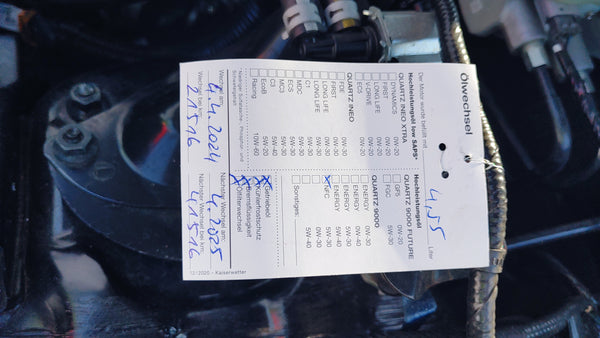 Ölwechsel
Der Motor wurde befüllt mit 4,55 Liter
Hochleistungsöl low SAPS*
QUARTZ INEO XTRA
DYNAMICS 0W-20
FIRST 0W-20
LONG LIFE 0W-20
V-DRIVE 0W-20
EC5 0W-20
QUARTZ INEO
FDE 0W-30
FIRST 0W-30
LONG LIFE 0W-30
LONG LIFE 5W-30
C1 5W-30
MDC 5W-30
ECS 5W-30
MC3 5W-30
C3 5W-40
EcoB 5W-20
Racing 10W-60
Hochleistungsöl
QUARTZ 9000 FUTURE
GF5 0W-20
FGC 5W-30
QUARTZ 9000
ENERGY 0W-30
ENERGY 0W-40
ENERGY 5W-30
ENERGY 5W-40
x NFC 5W-30
0W-30
5W-40
Sonstiges:
x Getriebeöl
x Kühlerfrostschutz
x Bremsflüssigkeit
x Ölfilterwechsel
Wechsel am: 4.4.2024
Nächster Wechsel am: 4.2025
Wechsel bei km: 21516
Nächster Wechsel bei km: 41516
12/2020 - Kaiserwetter